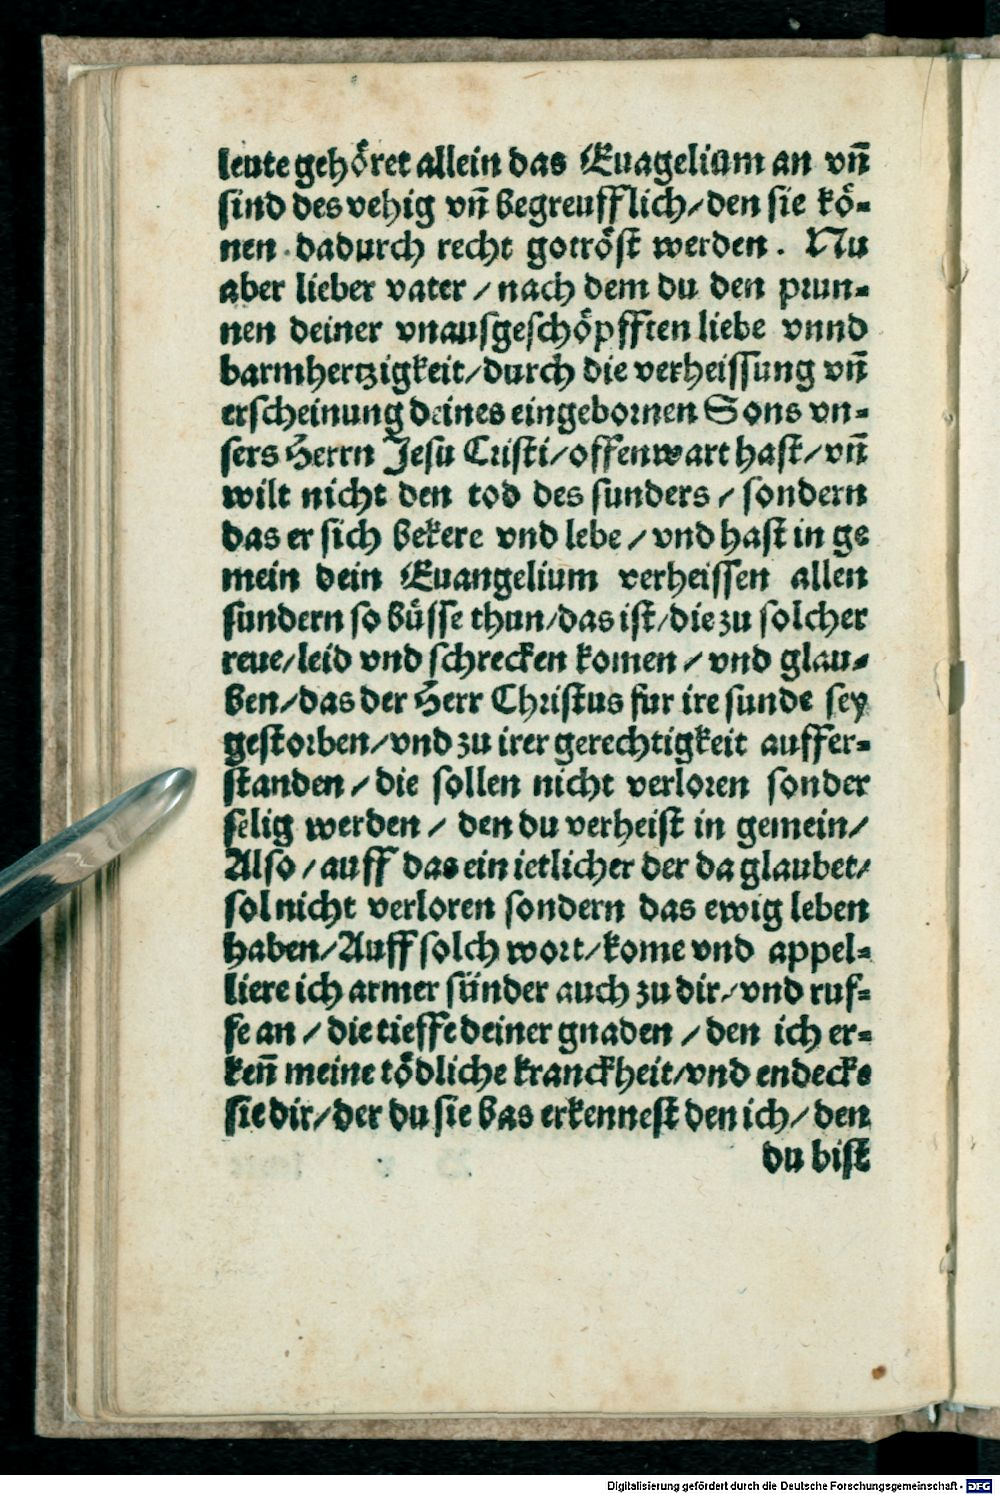 leute gehöret allein das Euagelium an vñ
sind des vehig vñ begreufflich/den sie kö-
nen dadurch recht gotröst werden. Nu
aber lieber vater / nach dem du den prun-
nen deiner vnausgeschöpfften liebe vnnd
barmhertzigkeit/durch die verheissung vñ
erscheinung deines eingebornen Sons vn-
sers Herrn Jesu Cristi/offenwart hast/vñ
wilt nicht den tod des sunders / sondern
das er sich bekere vnd lebe / vnd hast in ge
mein dein Euangelium verheissen allen
sundern so büsse thun/das ist/die zu solcher
reue/leid vnd schrecken komen / vnd glau-
ben/das der Herr Christus fur ire sunde sey
gestorben/vnd zu irer gerechtigkeit auffer-
standen / die sollen nicht verloren sonder
selig werden / den du verheist in gemein/
Also / auff das ein ietlicher der da glaubet/
sol nicht verloren sondern das ewig leben
haben/Auff solch wort/kome vnd appel-
liere ich armer sünder auch zu dir/vnd ruf-
fe an / die tieffe deiner gnaden / den ich er-
keñ meine tödliche kranckheit/vnd endecke
sie dir/der du sie bas erkennest den ich/ den
du bist
Digitalisierung gefördert durch die Deutsche Forschungsgemeinschaft - DFG